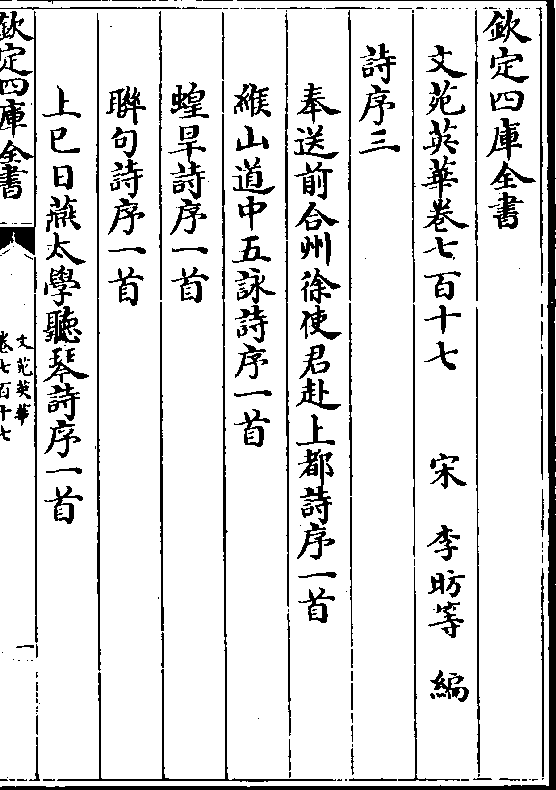 欽定四庫全書
文苑英華卷七百十七　宋　李昉等　編
詩序三
奉送前合州徐使君赴上都詩序一首
緱山道中五詠詩序一首
蝗旱詩序一首
聯句詩序一首
上巳日燕太學聽琴詩序一首
欽定四庫全書
文苑英華
卷七百十七
一